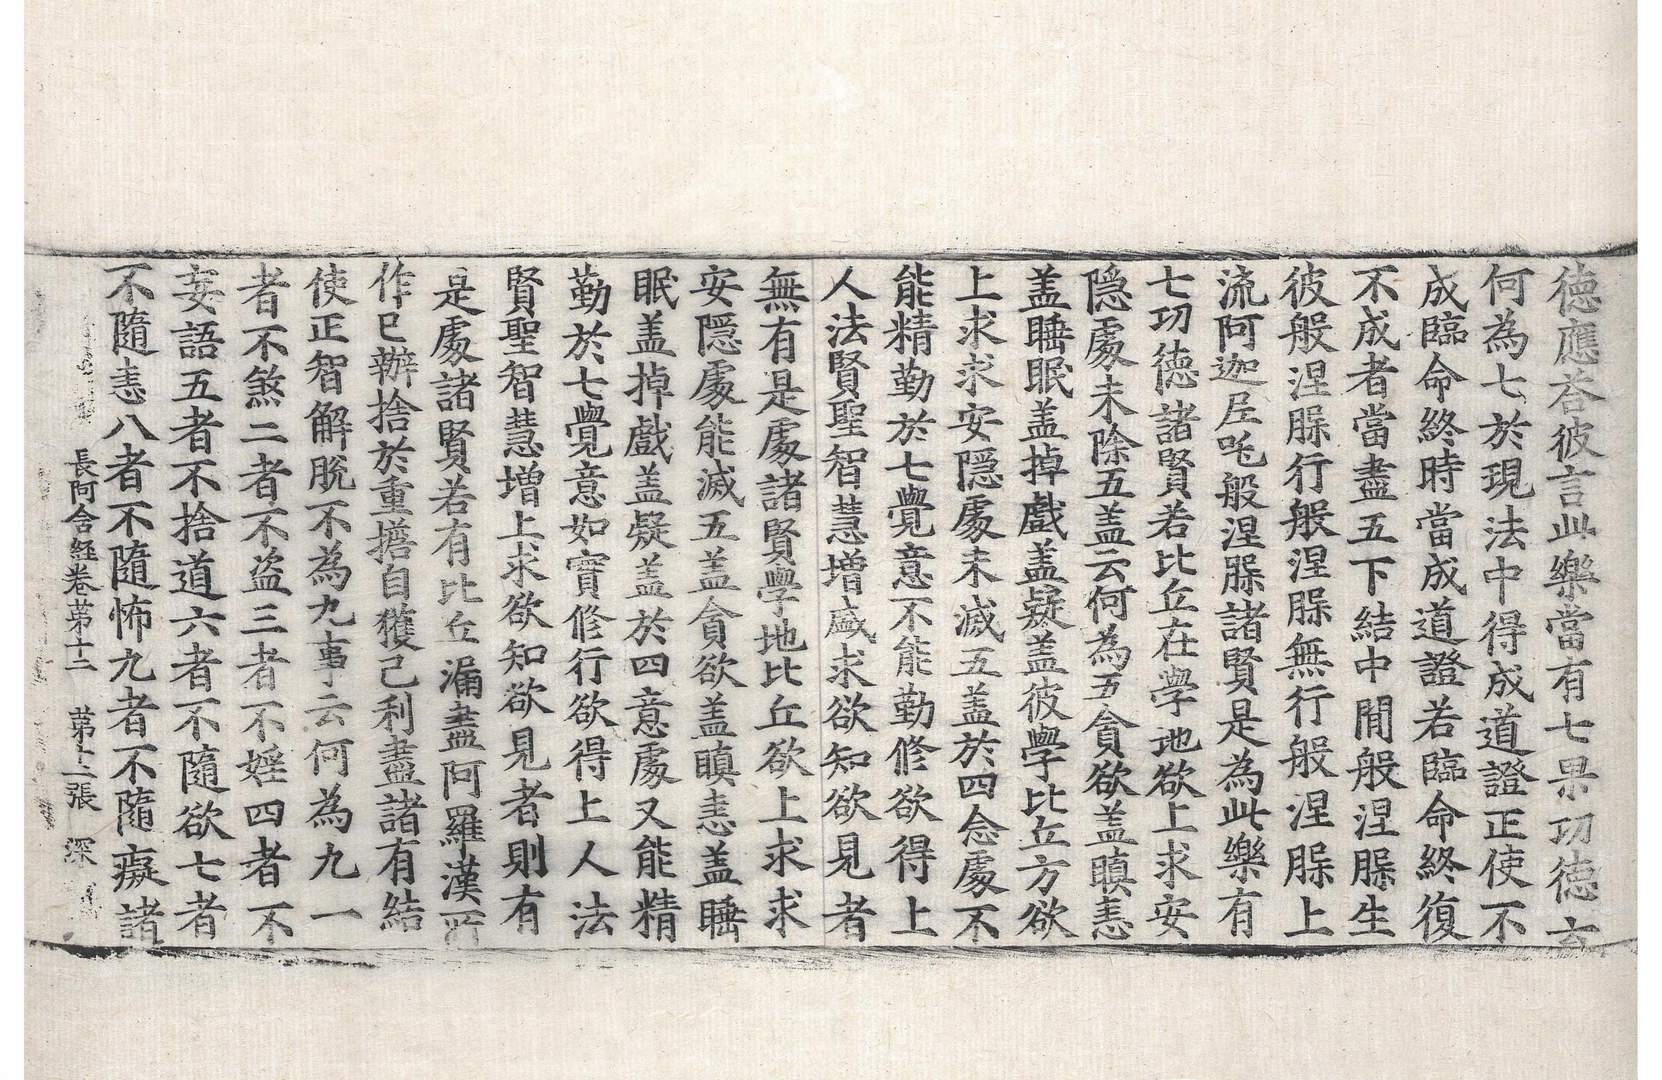 德應荅彼言此樂當有七果功德云
何為七於現法中得成道證正使不
成臨命終時當成道證若臨命終復
不成者當盡五下結中閒般涅槃生
彼般涅槃行般涅槃無行般涅槃上
流阿迦尼吒般涅槃諸賢是為此樂有
七功德諸賢若比丘在學地欲上求安
隱處未除五盖云何為五貪欲盖瞋恚
盖睡眠盖掉戲盖疑盖彼學比丘方欲
上求求安隱處未滅五盖於四念處不
能精勤於七覺意不能勤修欲得上
人法賢聖智慧增盛求欲知欲見者
無有是處諸賢學地比丘欲上求求
安隱處能滅五盖貪欲盖瞋恚盖睡
眠盖掉戲盖疑盖於四意處又能精
勤於七覺意如實修行欲得上人法
賢聖智慧增上求欲知欲見者則有
是處諸賢若有比丘漏盡阿羅漢所
作已辦捨於重擔自獲己利盡諸有結
使正智解脫不為九事云何為九一
者不煞二者不盜三者不婬四者不
妄語五者不捨道六者不隨欲七者
不隨恚八者不隨怖九者不隨癡諸
長阿含經卷第十二 第十二張 深